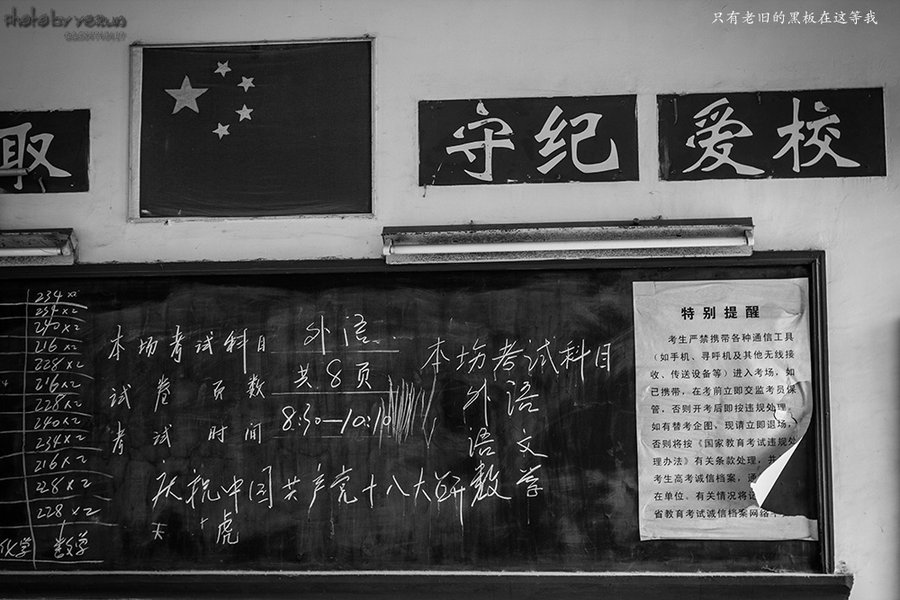 Photo by yexun
只有老旧的黑板在这等我
取
守纪
爱校
234×2
234×2
240×2
216×2
228×2
216×2
228×2
240×2
234×2
216×2
228×2
228×2
化学 数学
本场考试科目 外语
试卷页数 共8页
考试时间 8:30—10:10
庆祝中国共产党十八大
虎
本场考试科目
外语
语文
数学
特别提醒
考生严禁携带各种通信工具
(如手机、寻呼机及其他无线接
收、传送设备等)进入考场,如
已携带,在考前立即交监考员保
管,否则开考后即按违规处理。
如有替考企图,现请立即退场,
否则将按《国家教育考试违规处
理办法》有关条款处理,并
考生高考诚信档案,通
在单位。有关情况将记
省教育考试诚信档案网络